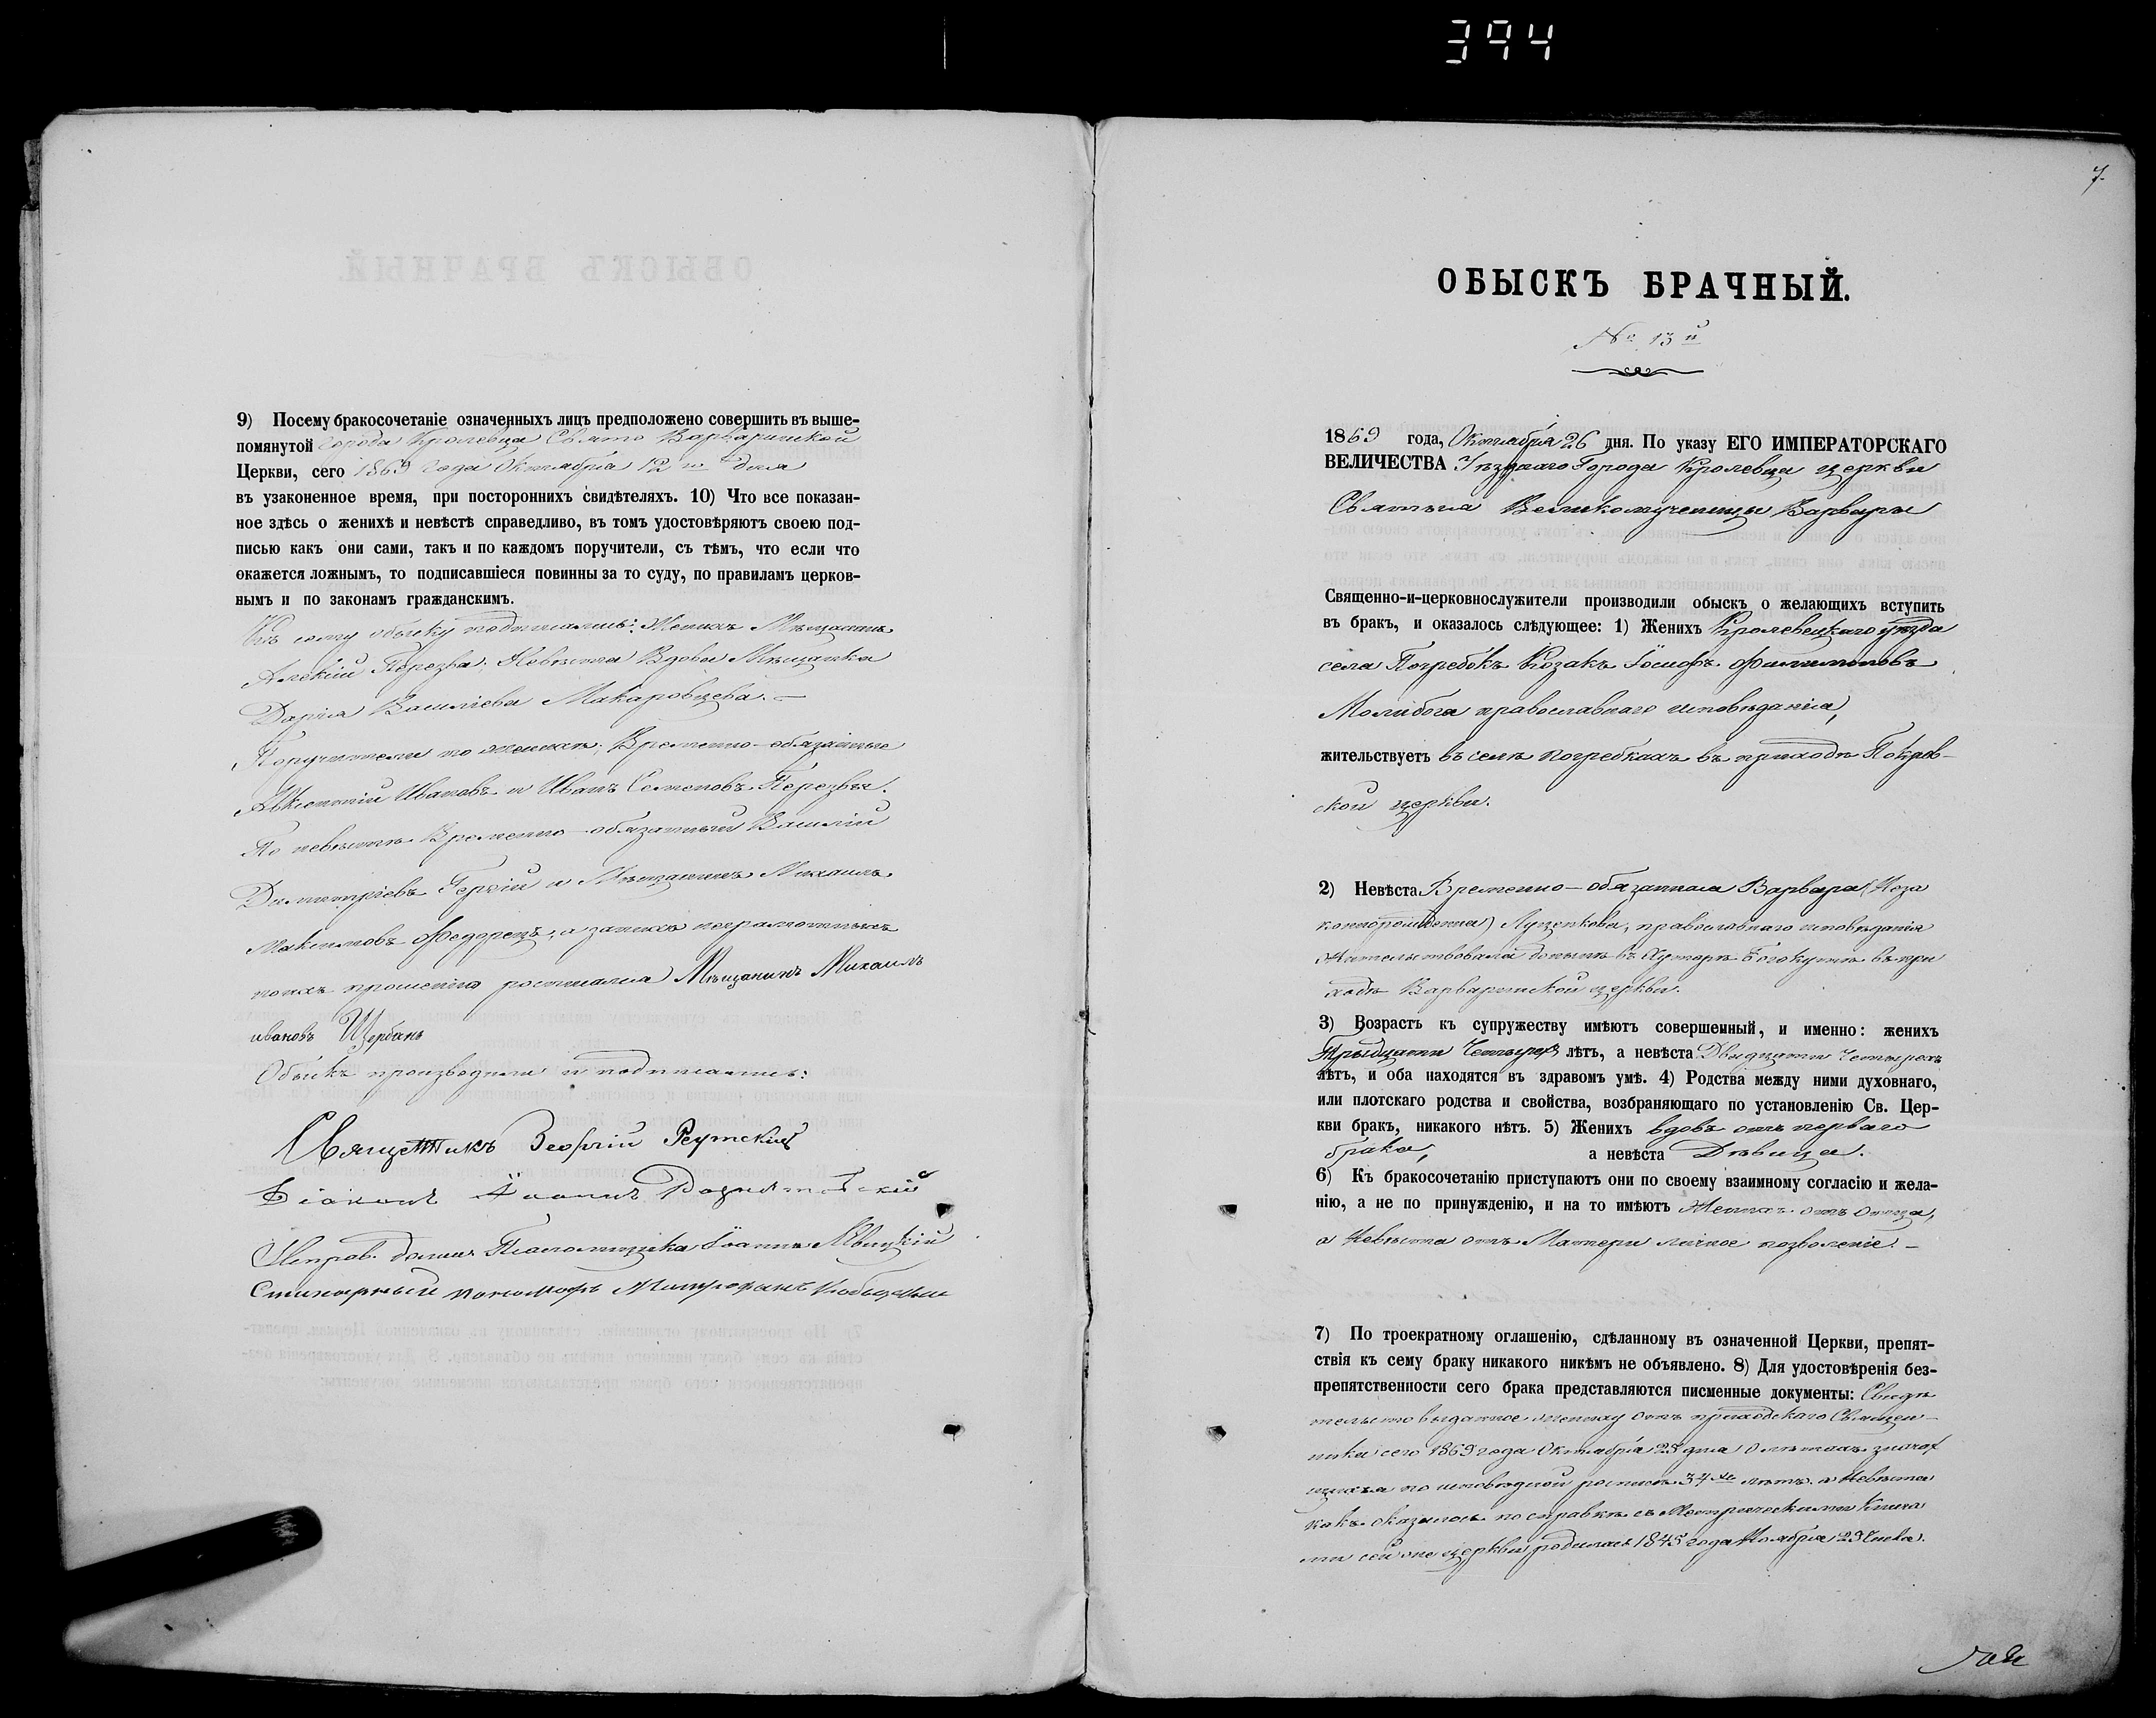 394
9) Посему бракосочетаніе означенныхъ лицъ предположено совершить въ выше-
помянутой города Кролевца Свято Варваринской
Церкви, сего 1869 года Октября 12 го дня
въ узаконенное время, при постороннихъ свидѣтеляхъ. 10) Что все показан-
ное здѣсь о женихѣ и невѣстѣ справедливо, въ томъ удостовѣряютъ своею под-
писью какъ они сами, такъ и по каждомъ поручители, съ тѣмъ, что если что
окажется ложнымъ, то подписавшіеся повинны за то суду, по правиламъ церков-
нымъ и по законамъ гражданскимъ.
Къ сему обыску подписались: Женихъ Мѣщанинъ
Алексій Перезва. Невѣста Вдова Мѣщанка
Дарія Васильева Макаровцева.—
Поручители по женихѣ: Временно-обязанные
Иванов и Иванъ Семеновъ Перезвы.
По невѣстѣ Временно-обязанный Василій
Димитріевъ и Мѣщанинъ Михаилъ
Максимовъ Федорецъ, а за нихъ неграмотныхъ
по ихъ прошенію росписался Мѣщанинъ Михаилъ
ивановъ Щербань
Обыскъ производили и подписались:
Священникъ Георгій Реутскій
Діаконъ Іоаннъ
Исправ. долж. Псаломщика Іоаннъ Левицкій
пономарь Митрофанъ
7.
ОБЫСКЪ БРАЧНЫЙ.
№ 13 й
1869 года, Октября 26 дня. По указу ЕГО ИМПЕРАТОРСКАГО
ВЕЛИЧЕСТВА Уѣзднаго Города Кролевца церкви
Святыя Великомученицы Варвары
Священно-и-церковнослужители производили обыскъ о желающихъ вступить
въ бракъ, и оказалось слѣдующее: 1) Женихъ Кролевецкаго уѣзда
села Погребокъ Козакъ Іосифъ Филимоновъ
Молибога православнаго исповѣданія,
жительствуетъ въ селѣ Погребкахъ въ приходѣ Покров-
ской церкви.
2) Невѣста Временно-обязанная Варвара (Неза
коннорожденна) Луценкова, православнаго исповѣданія
жительствовала донынѣ въ Хуторѣ въ при
ходѣ Варваринской церкви.
3) Возрастъ къ супружеству имѣютъ совершенный, и именно: женихъ
Тридцати Четырехъ лѣтъ, а невѣста Двадцати Четырехъ
лѣтъ, и оба находятся въ здравомъ умѣ. 4) Родства между ними духовнаго,
или плотскаго родства и свойства, возбраняющаго по установленію Св. Цер-
кви бракъ, никакого нѣтъ. 5) Женихъ вдовъ отъ перваго
брака, а невѣста Дѣвица.
6) Къ бракосочетанію приступаютъ они по своему взаимному согласію и жела-
нію, а не по принужденію, и на то имѣютъ Женихъ отъ Отца,
а Невѣста отъ Матери личное позволеніе.—
7) По троекратному оглашенію, сдѣланному въ означенной Церкви, препят-
ствія къ сему браку никакого никѣмъ не объявлено. 8) Для удостовѣренія без-
препятственности сего брака представляются писменные документы: Свидѣ
тельство выданное жениху отъ приходскаго Священ-
ника сего 1869 года Октября 25 дня о лѣтахъ знача
щихся по исповѣдной росписи 34 лѣтъ. а Невѣста
какъ оказалось по справкѣ съ Метрическими Книга
ми сей же церкви родилась 1845 года Ноября 29 Числа.